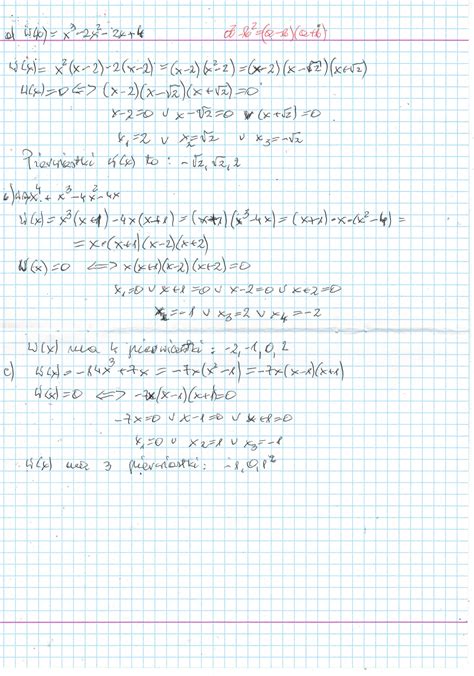 a) W(x) = x³-2x²-2x+4   a²-b²=(a-b)(a+b)
W(x) = x²(x-2)-2(x-2) = (x-2)(x²-2) = (x-2)(x-√2)(x+√2)
W(x)=0 ⟺ (x-2)(x-√2)(x+√2)=0
x-2=0 ∨ x-√2=0 ∨ (x+√2)=0
x₁=2 ∨ x₂=√2 ∨ x₃=-√2
Pierwiastki W(x) to: -√2, √2, 2
x⁴ + x³-4x²-4x
W(x) = x³(x+1)-4x(x+1) = (x+1)(x³-4x) = (x+1)·x·(x²-4) =
= x·(x+1)(x-2)(x+2)
W(x)=0 ⟺ x(x+1)(x-2)(x+2)=0
x₁=0 ∨ x+1=0 ∨ x-2=0 ∨ x+2=0
x₂=-1 ∨ x₃=2 ∨ x₄=-2
W(x) ma 4 pierwiastki: -2,-1,0,2
c) W(x) = -14x³+7x = -7x(x²-1) = -7x(x-1)(x+1)
W(x)=0 ⟺ -7x(x-1)(x+1)=0
-7x=0 ∨ x-1=0 ∨ x+1=0
x₁=0 ∨ x₂=1 ∨ x₃=-1
W(x) ma 3 pierwiastki: -1,0,1